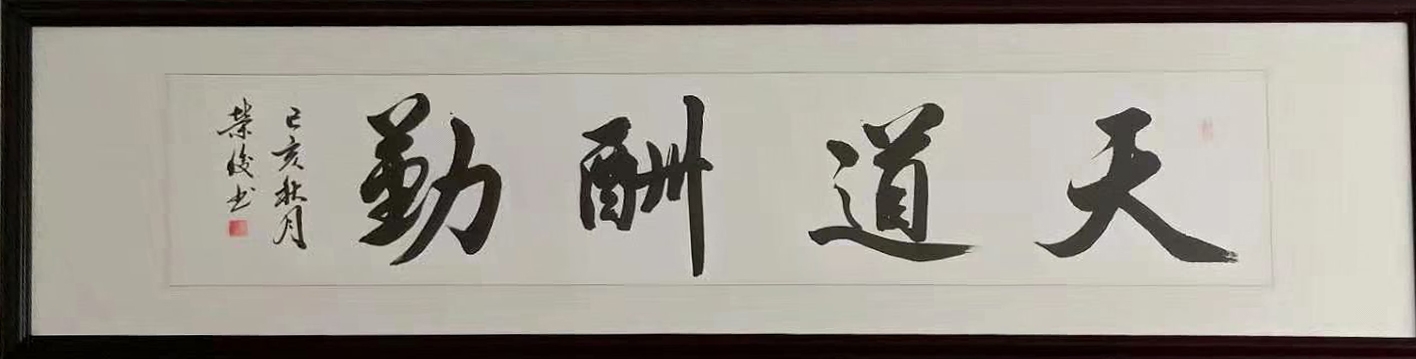 天道酬勤
己亥秋月
荣俊书